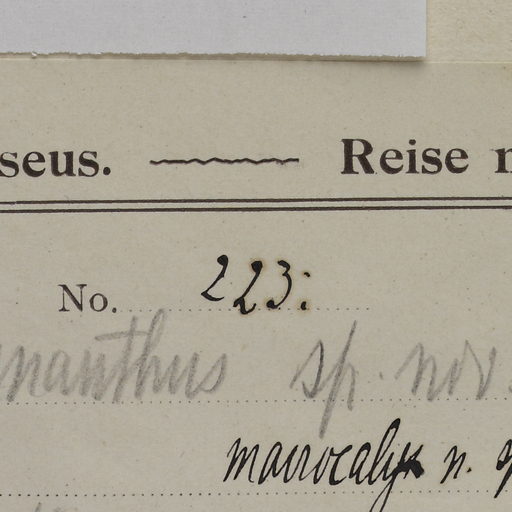 seus. Reise n
No. 223.
nanthus sp. nov.
macrocalyx n. sp